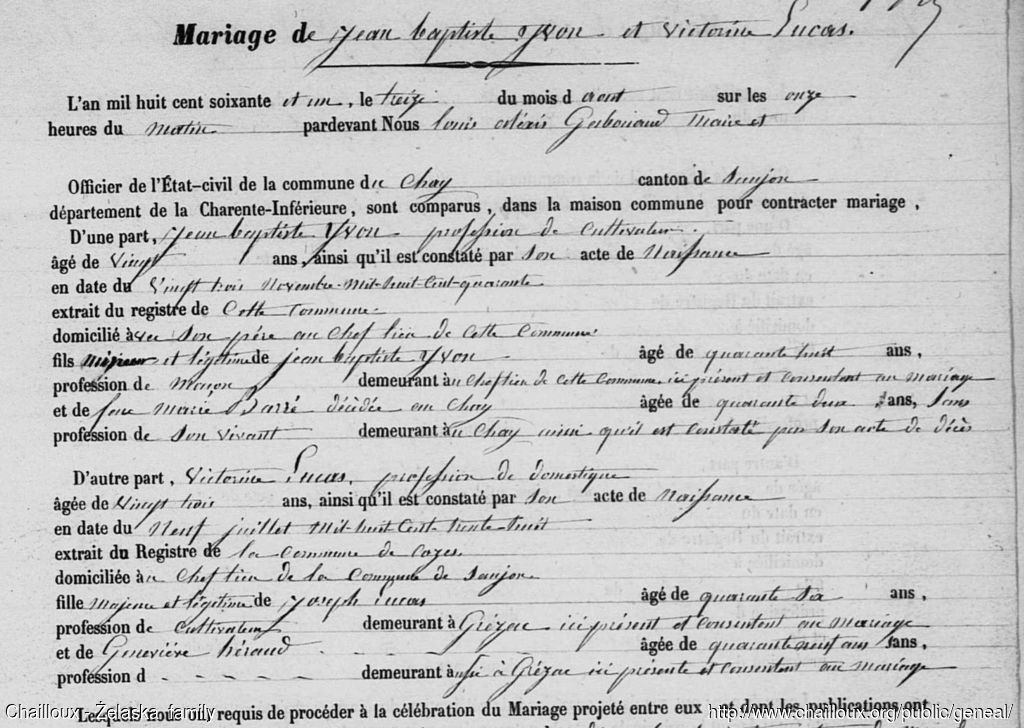 Mariage de Jean baptiste Yvon et Victorine Lucas.
L'an mil huit cent soixante et un, le treize du mois d août sur les onze
heures du matin pardevant Nous Louis Alexis Maire et
Officier de l'État-civil de la commune du Chay canton de Saujon
département de la Charente-Inférieure, sont comparus, dans la maison commune pour contracter mariage,
D'une part, Jean baptiste Yvon profession de Cultivateur.
âgé de Vingt ans, ainsi qu'il est constaté par Son acte de Naissance
en date du Vingt trois Novembre Mil huit Cent quarante
extrait du registre de Cette Commune
domicilié avec Son père au Chef lieu de Cette Commune
fils et légitime de jean baptiste Yvon âgé de quarante huit ans,
profession de Maçon demeurant au Chef lieu de Cette Commune, ici présent et consentant au mariage
et de feue Marie Barré décédée au Chay âgée de quarante deux ans, Sans
profession de Son vivant demeurant au Chay ainsi qu'il est constaté par Son acte de décès
D'autre part, Victorine Lucas, profession de domestique
âgée de Vingt trois ans, ainsi qu'il est constaté par Son acte de Naissance
en date du Neuf juillet Mil huit Cent trente huit
extrait du Registre de la Commune de Cozes
domiciliée au Chef lieu de la Commune de Saujon
fille Majeure et légitime de Joseph Lucas âgé de quarante Six ans,
profession de Cultivateur demeurant à Grézac ici présent et Consentant au Mariage
et de Geneviève héraud âgée de quarante neuf ans Sans,
profession d demeurant aussi à Grézac ici présente et consentant au mariage
Lesquels nous ont requis de procéder à la célébration du Mariage projeté entre eux et dont les publications ont
Chailloux - Żelaska family
http://www.chaillourx.org/public/geneal/